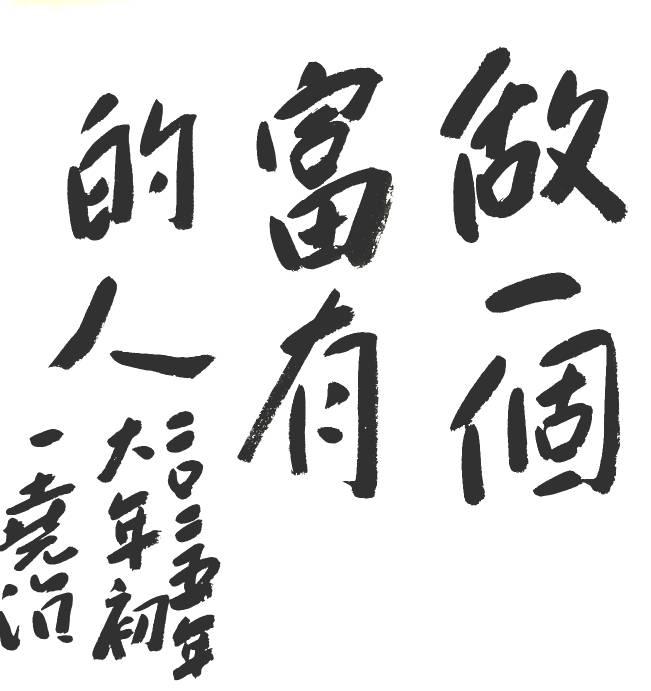 做一個
富有
的人
二〇二五年
大年初
一堯治